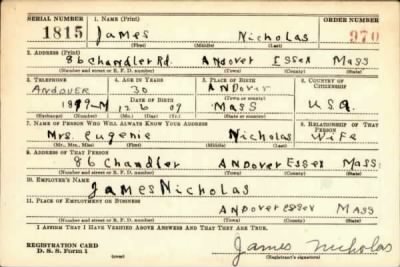 SERIAL NUMBER 1. NAME (Print) ORDER NUMBER
1815 James Nicholas 970
(First) (Middle) (Last)
2. ADDRESS (Print)
86 Chandler Rd. Andover Essex Mass
(Number and street or R. F. D. number) (Town) (County) (State)
3. TELEPHONE 4. AGE IN YEARS 5. PLACE OF BIRTH 6. COUNTRY OF CITIZENSHIP
Andover 30 Andover
DATE OF BIRTH (Town or county)
12 6 09 Mass U.S.A.
(Exchange) (Number) (Mo.) (Day) (Yr.) (State or country)
7. NAME OF PERSON WHO WILL ALWAYS KNOW YOUR ADDRESS 8. RELATIONSHIP OF THAT PERSON
Mrs. Eugenie Nicholas Wife
(Mr., Mrs., Miss) (First) (Middle) (Last)
9. ADDRESS OF THAT PERSON
86 Chandler Andover Essex Mass
(Number and street or R. F. D. number) (Town) (County) (State)
10. EMPLOYER'S NAME
James Nicholas
11. PLACE OF EMPLOYMENT OR BUSINESS
Andover Essex Mass
(Number and street or R. F. D. number) (Town) (County) (State)
I AFFIRM THAT I HAVE VERIFIED ABOVE ANSWERS AND THAT THEY ARE TRUE.
REGISTRATION CARD
D. S. S. Form 1 James Nicholas
(over) (Registrant's signature)